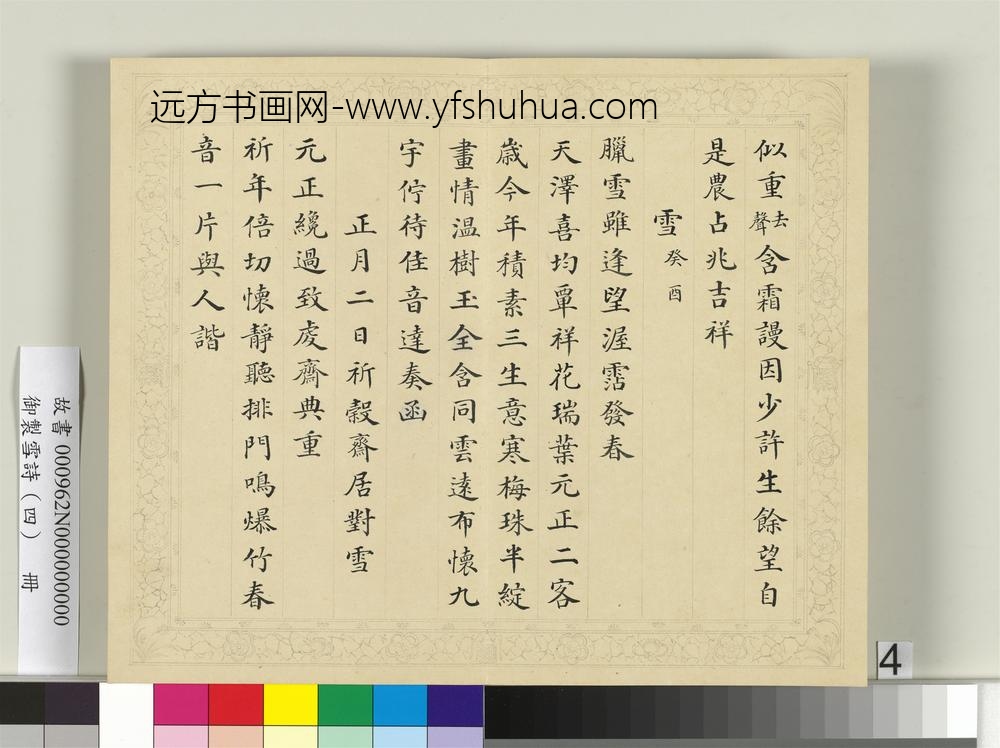 远方书画网-www.yfshuhua.com
似重去聲含霜謾因少許生餘望自
是農占兆吉祥
雪癸酉
臘雪雖逢望渥霑發春
天澤喜均覃祥花瑞葉元正二客
歲今年積素三生意寒梅珠半綻
畫情溫樹玉全含同雲遠布懷九
宇佇待佳音達奏函
正月二日祈穀齋居對雪
元正纔過致虔齋典重
祈年倍切懷靜聽排門鳴爆竹春
音一片與人諧
故書 000962N000000000
御製雪詩(四) 冊
4